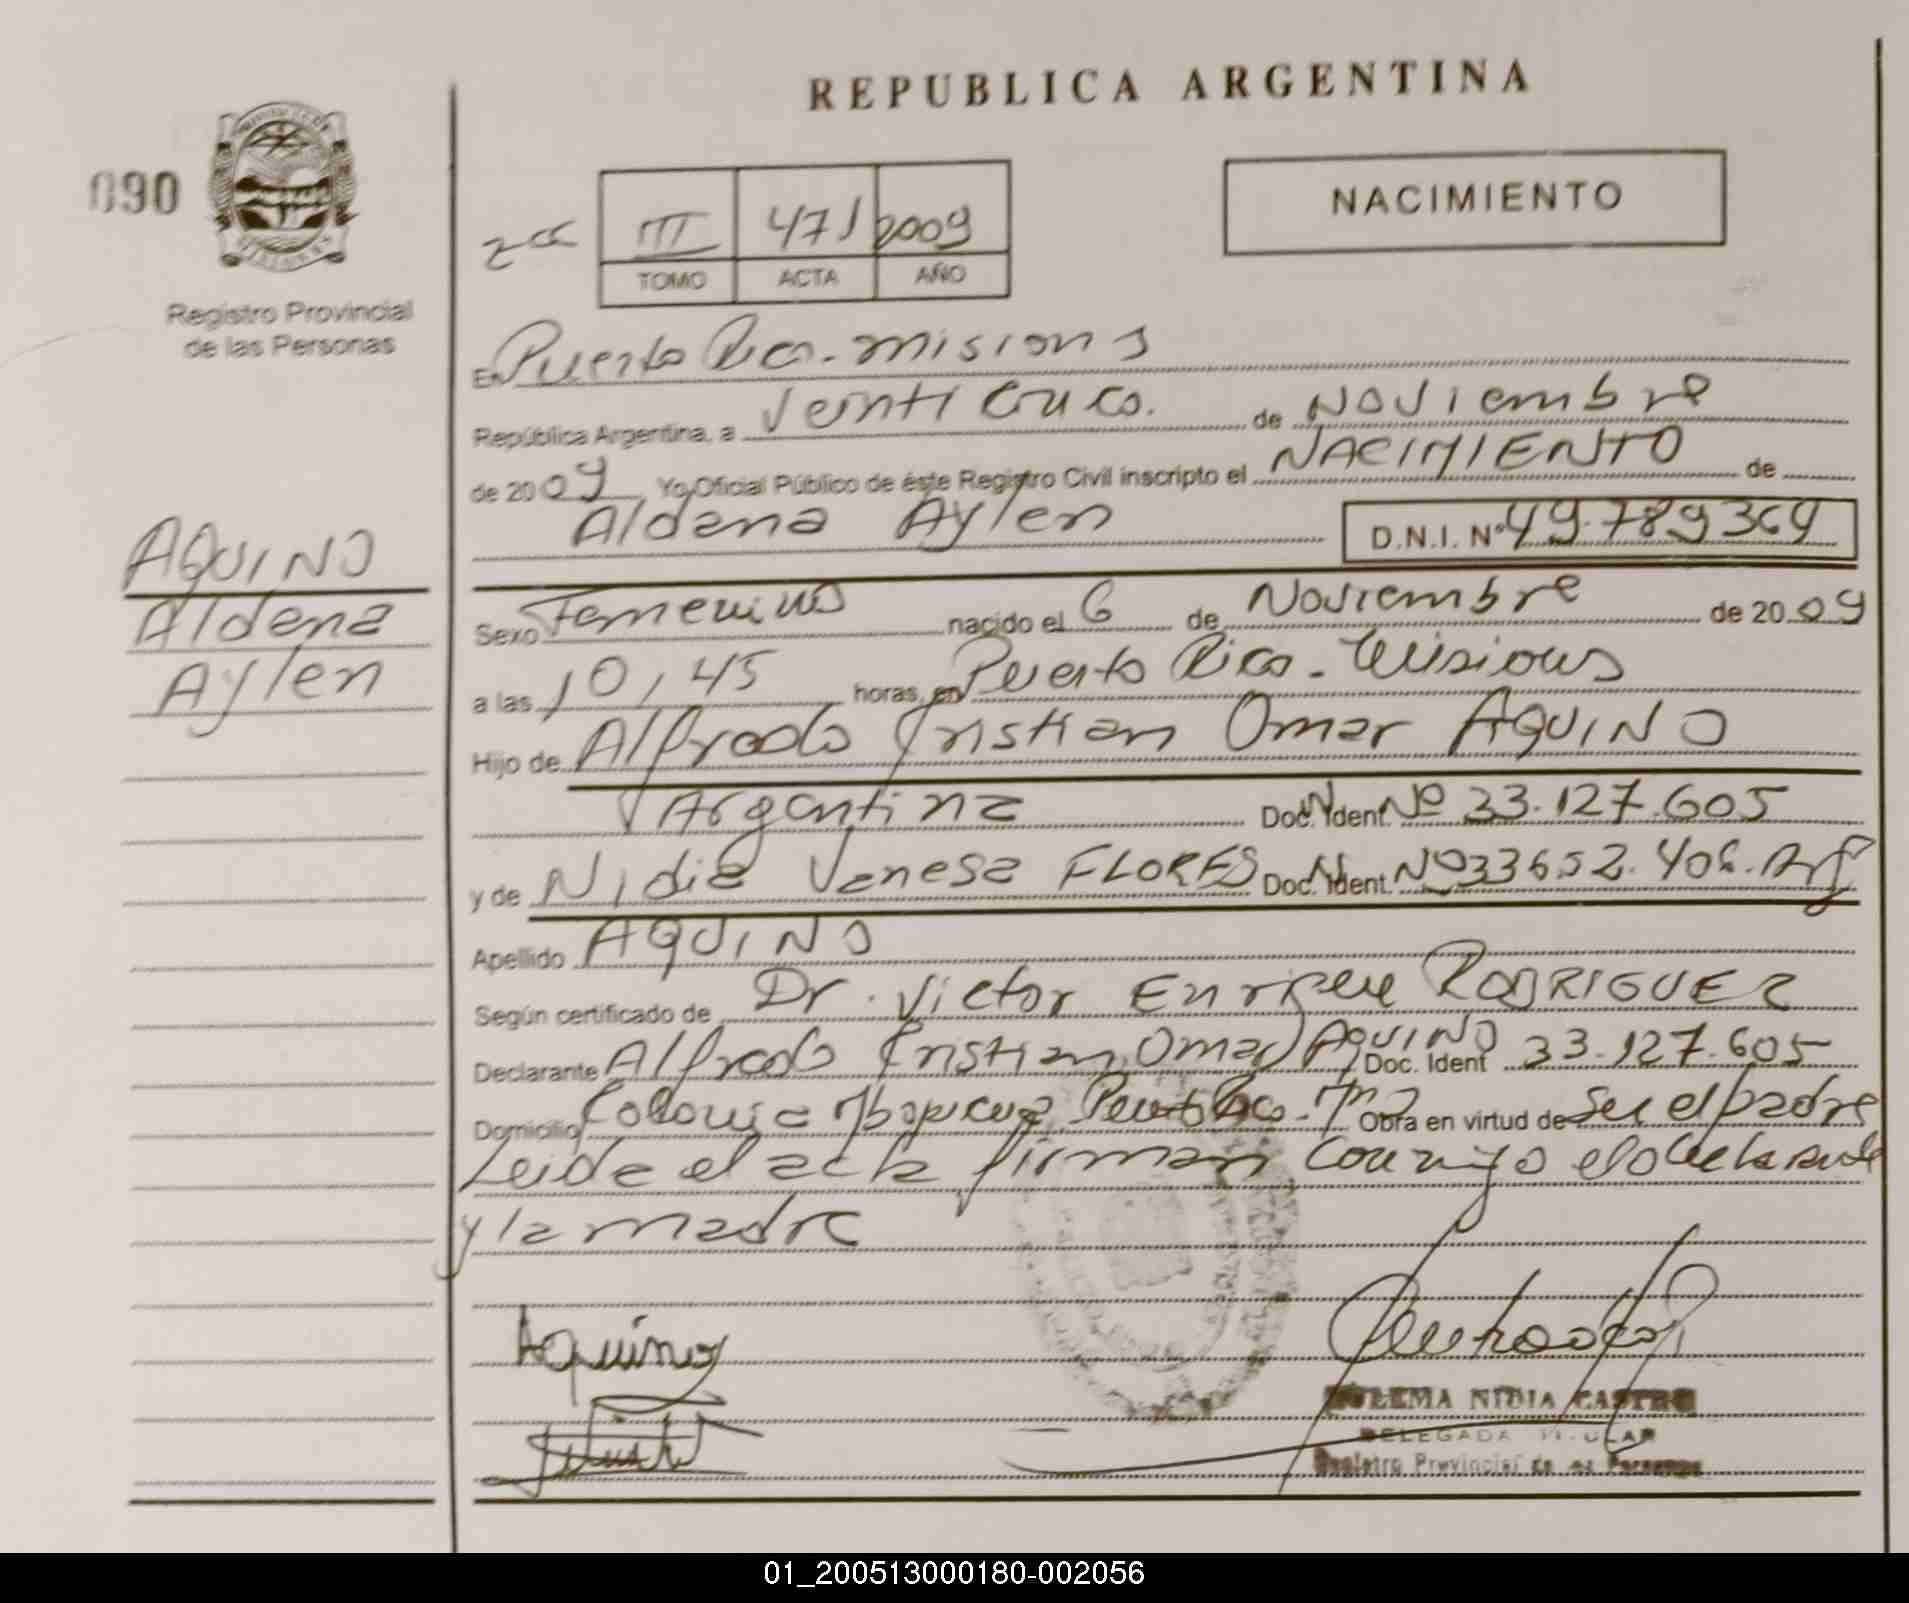 REPUBLICA ARGENTINA
090
NACIMIENTO
2da III 471 2009
TOMO ACTA AÑO
Registro Provincial
de las Personas
En Puerto Rico - misiones
República Argentina, a Veinti Cinco. de Noviembre
de 2009 Yo Oficial Público de éste Registro Civil inscripto el NACIMIENTO de
Aldana Aylen D.N.I. Nº 49.789369
AQUINO
Aldana
Aylen
Sexo Femenino nacido el 6 de Noviembre de 2009
a las 10,45 horas, en Puerto Rico - Misiones
Hijo de Alfredo Cristian Omar AQUINO
Argentina Doc. Ident. Nº 33.127.605
y de Nidia Vanesa FLORES Doc. Ident. Nº 33652.406. Arg
Apellido AQUINO
Según certificado de Dr. Victor Enrique RODRIGUEZ
Declarante Alfredo Cristian Omar AQUINO Doc. Ident 33.127.605
Domicilio Colonia Puerto Rico - Obra en virtud de Ser el padre
Leida el acta firman conmigo el declarante
y la madre
Aquino
ZULEMA NIDIA CASTRO
DELEGADA TITULAR
Registro Provincial de las Personas
01_200513000180-002056